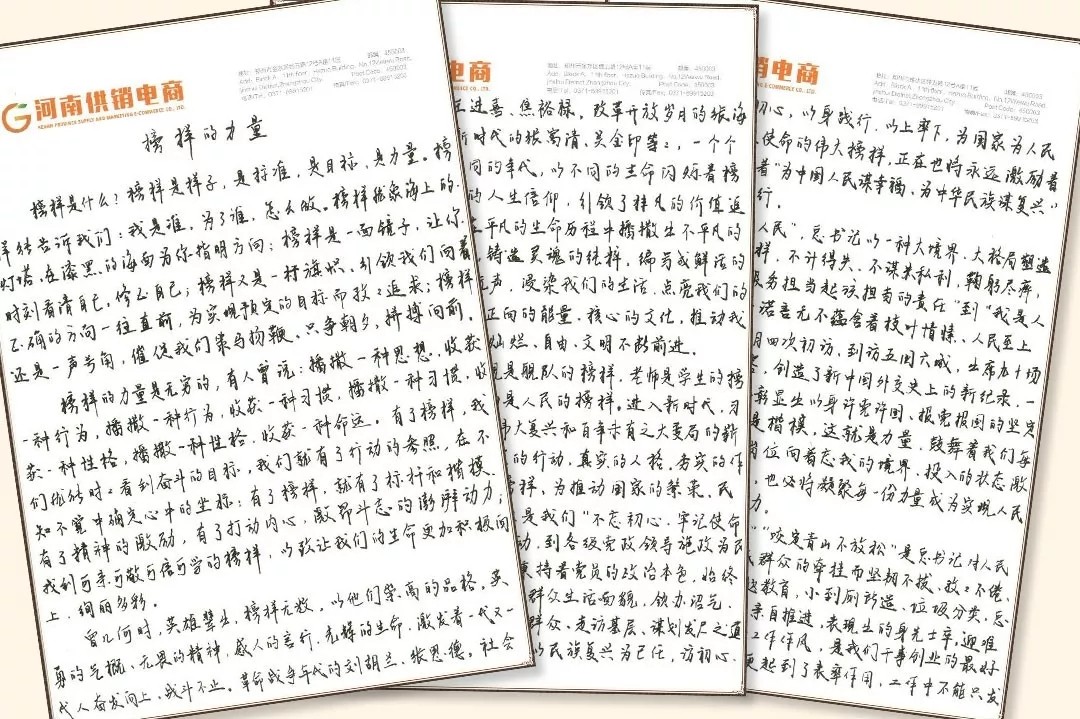 河南供销电商
HENAN PROVINCE SUPPLY AND MARKETING E-COMMERCE CO., LTD.
榜样的力量
榜样是什么？榜样是样子，是标准，是目标，是力量。榜
样能告诉我们：我是谁，为了谁，怎么做。榜样就象海上的
灯塔，在漆黑的海面为你指明方向；榜样是一面镜子，让你
时刻看清自己，修正自己；榜样又是一杆旗帜，引领我们向着
正确的方向一往直前，为实现预定的目标而孜孜追求；榜样
还是一声号角，催促我们策马扬鞭、只争朝夕，拼搏向前。
榜样的力量是无穷的，有人曾说：播撒一种思想，收获
一种行为，播撒一种行为，收获一种习惯，播撒一种习惯，收
获一种性格，播撒一种性格，收获一种命运。有了榜样，我
们能够时时看到奋斗的目标，我们就有了行动的参照，在不
知不觉中确定心中的坐标；有了榜样，就有了标杆和楷模，
有了精神的激励，有了打动内心，激昂斗志的澎湃动力；
找到可亲可敬可信可学的榜样，以致让我们的生命更加积极向
上、绚丽多彩。
曾几何时，英雄辈出，榜样无数，以他们崇高的品格，英
勇的气概、无畏的精神，感人的言行，光辉的生命，激发着一代又一
代人奋发向上，战斗不止。革命战争年代的刘胡兰、张思德。社会
电商
王进喜、焦裕禄，改革开放岁月的张海
新时代的张富清、吴金印等等，一个个
同的年代，以不同的生命闪烁着榜
的人生信仰，引领了非凡的价值追
平凡的生命历程中播撒出不平凡的
铸造灵魂的纯粹，编写成鲜活的
无声，浸染我们的生活，点亮我们的
正向的能量、核心的文化，推动我
灿烂、自由、文明不断前进。
是舰队的榜样，老师是学生的榜
是人民的榜样。进入新时代，习
伟大复兴和百年未有之大变局的新
的行动，真实的人格，务实的作
榜样，为推动国家的繁荣、民
是我们“不忘初心、牢记使命
动，到各级党政领导施政为民
秉持着党员的政治本色，始终
群众生活面貌，领办
群众、走访基层、谋划发展之道
以民族复兴为己任，访初心、
电商
初心，以身践行，以上率下，为国家为人民
使命的伟大榜样，正在也将永远激励着
着“为中国人民谋幸福、为中华民族谋复兴”
行。
人民”，总书记以一种大境界、大格局塑造
样，不计得失、不谋求私利，鞠躬尽瘁，
服务担当起该担当的责任”到“我是人
诺言无不蕴含着枝叶情愫、人民至上
月四次初访，到访五国六城，出席九十场
，创造了新中国外交史上的新纪录，一
彰显出以身许党许国、报党报国的坚定
是楷模，这就是力量，鼓舞着我们每
岗位向着忘我的境界，投入的状态激
，也必将凝聚每一份力量成为实现人民
力。
“咬定青山不放松”是总书记对人民
群众的牵挂而坚韧不拔、孜孜不倦、
教育，小到厕所改造、垃圾分类，总
亲自推进，表现出的身先士卒，迎难
工作作风，是我们干事创业的最好
更起到了表率作用，工作中不能只发